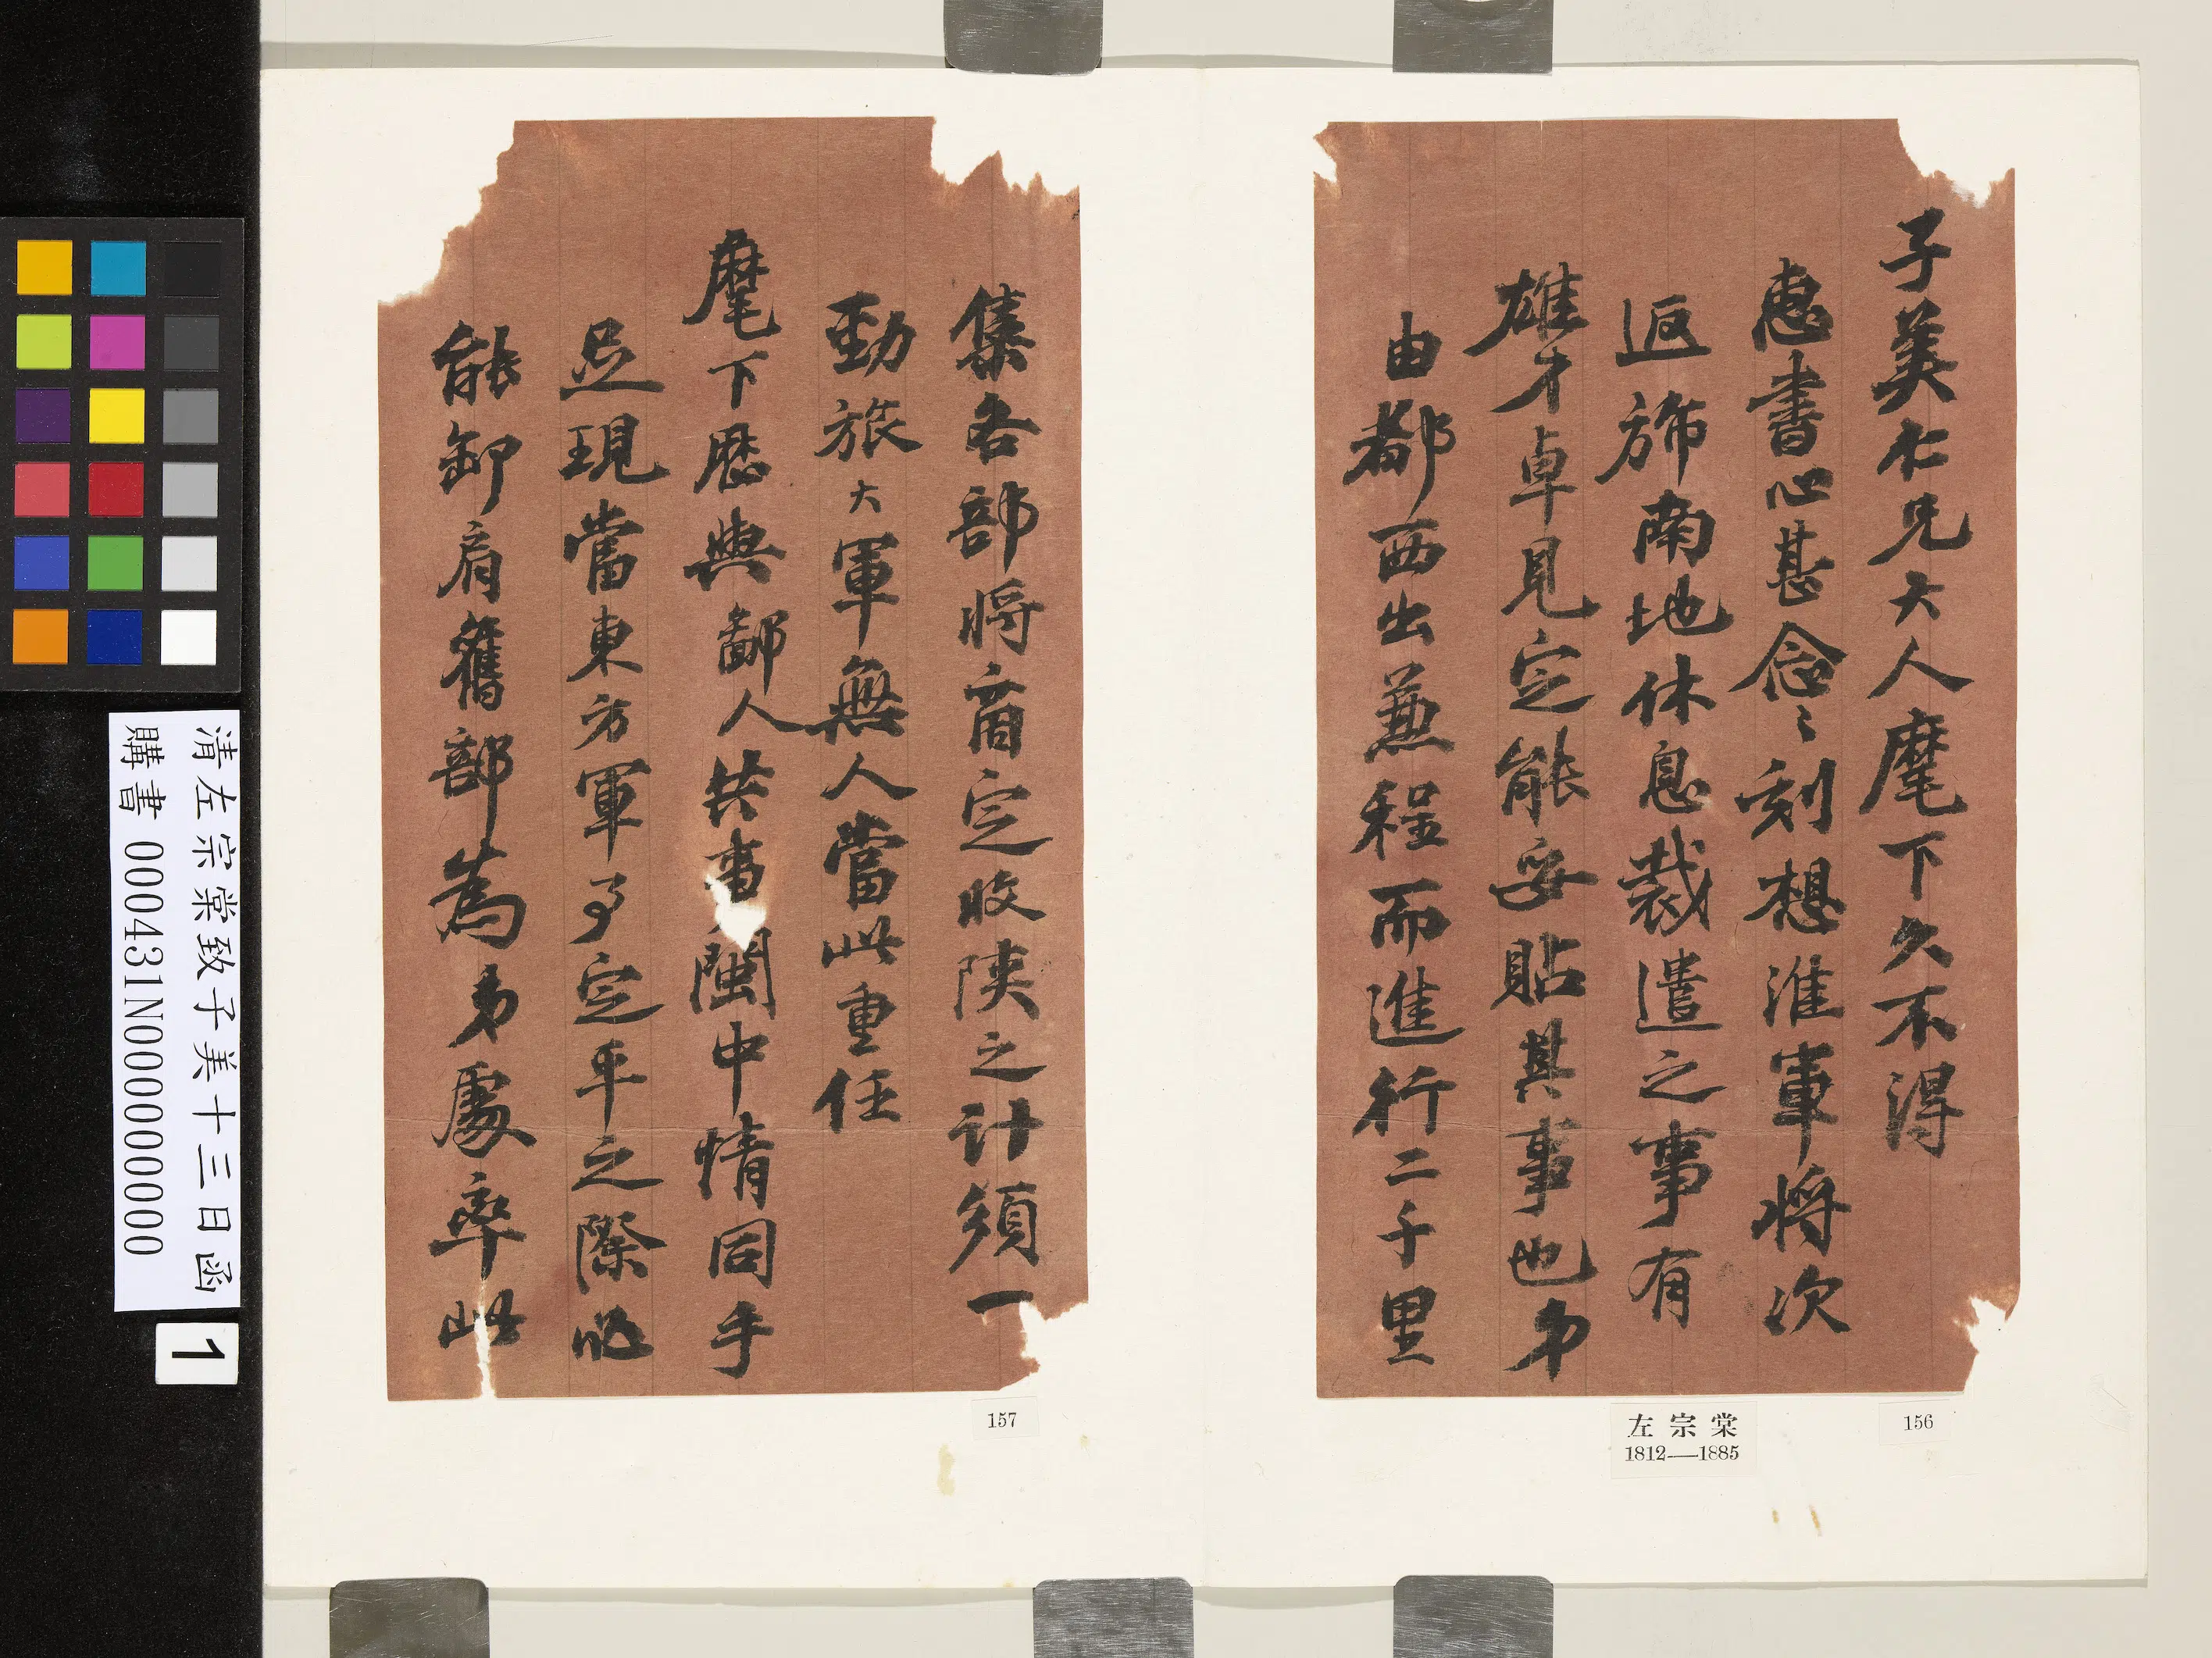 子美仁兄大人麾下久不得
惠書心甚念〻刻想淮軍將次
返旆南地休息裁遣之事有
雄才卓見定能妥貼其事也弟
由都西出兼程而進行二千里
集各部將商定收陝之計須一
勁旅大軍無人當此重任
麾下歷與鄙人共事閩中情同手
足現當東方軍事定平之際必
能卸肩舊部為弟處率此
156
左宗棠
1812—1885
157
清左宗棠致子美十三日函
購書 000431N000000000
1